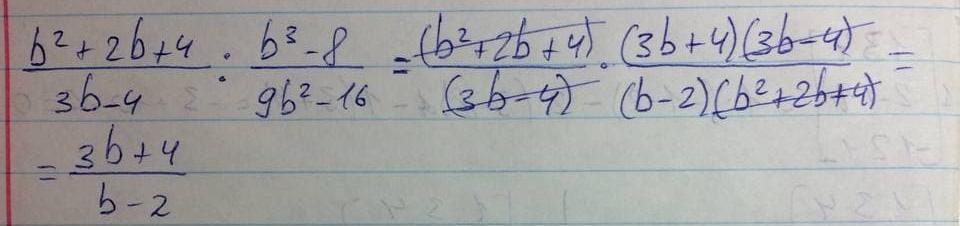 (b²+2b+4)/(3b-4) : (b³-8)/(9b²-16) = (b²+2b+4)/(3b-4) · (3b+4)(3b-4)/(b-2)(b²+2b+4) =
= (3b+4)/(b-2)